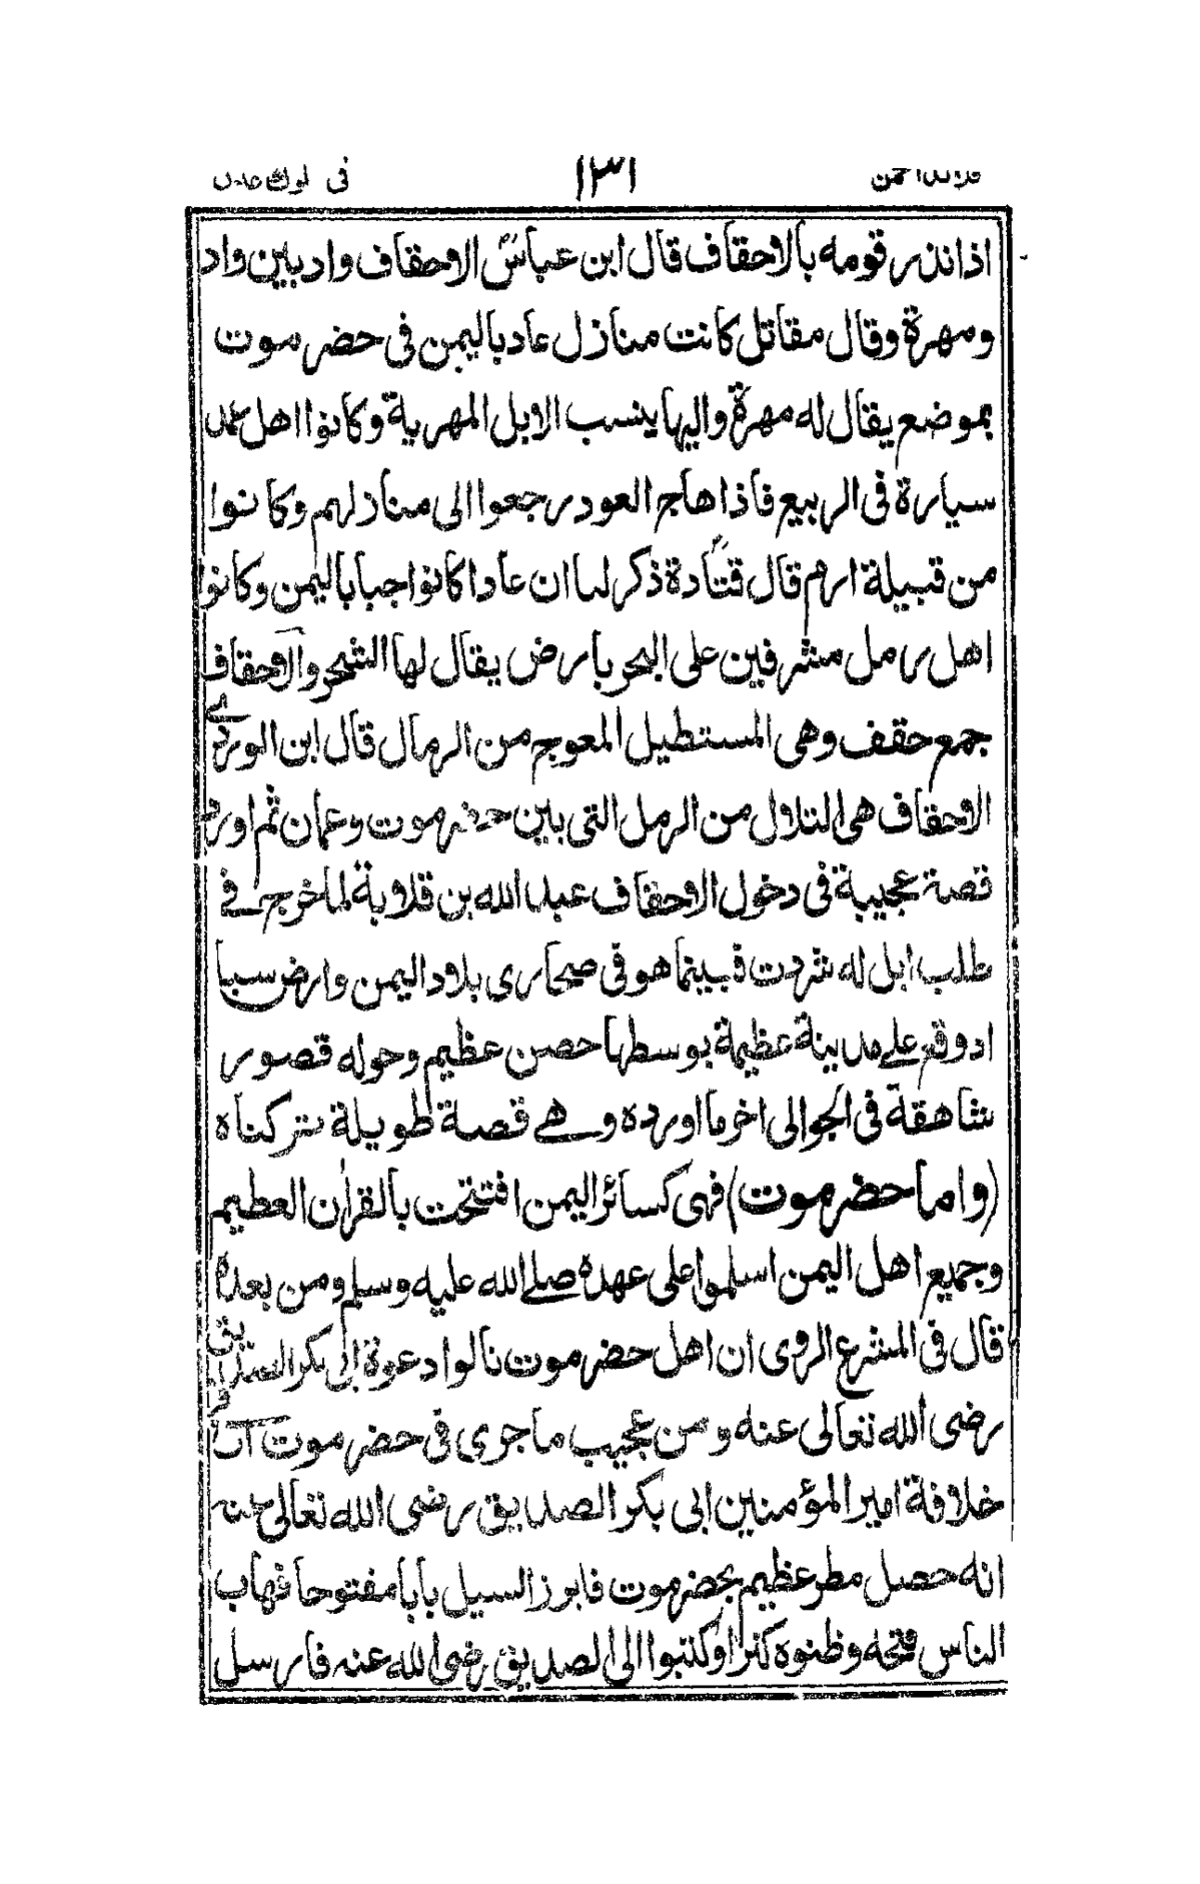 ١٣١
اذ انذر قومه بالاحقاف قال ابن عباس الاحقاف واد بين واد
ومهرة وقال مقاتل كانت منازل عاد باليمن فى حضر موت
بموضع يقال له مهرة واليها ينسب الابل المهرية وكانوا اهل عمد
سيارة فى الربيع فاذا هاج العود رجعوا الى منازلهم وكانوا
من قبيلة ارم قال قتادة ذكر لنا ان عادا كانوا جبابا باليمن وكانوا
اهل رمل مشرفين على البحر بارض يقال لها الشحر والاحقاف
جمع حقف وهى المستطيل المعوج من الرمال قال ابن الوردے
الاحقاف هى التلال من الرمل التى بين حضرموت وعمان ثم اورد
قصة عجيبة فى دخول الاحقاف عبد الله بن قلابة لما خرج فے
طلب ابل له شردت فبينما هو فى صحارى بلاد اليمن وارض سبا
اذ وقع على مدينة عظيمة بوسطها حصن عظيم وحوله قصور
شاهقة فى الجو الى اخر ما اورده وهے قصة طويلة تركناه
(واما حضرموت) فهى كسائر اليمن افتتحت بالقران العظيم
وجميع اهل اليمن اسلموا على عهده صلے الله عليه وسلم ومن بعده
قال فى المشرع الروى ان اهل حضرموت نالوا دعوة ابى بكر الصديق
رضى الله تعالى عنه ومن عجيب ما جرى فى حضرموت ان
خلافة امير المؤمنين ابى بكر الصديق رضى الله تعالى عنه
انه حصل مطر عظيم بحضرموت فابرز السيل بابا مفتوحا فهاب
الناس فتحه وظنوه كنزا وكتبوا الى الصديق رضى الله عنه فارسل